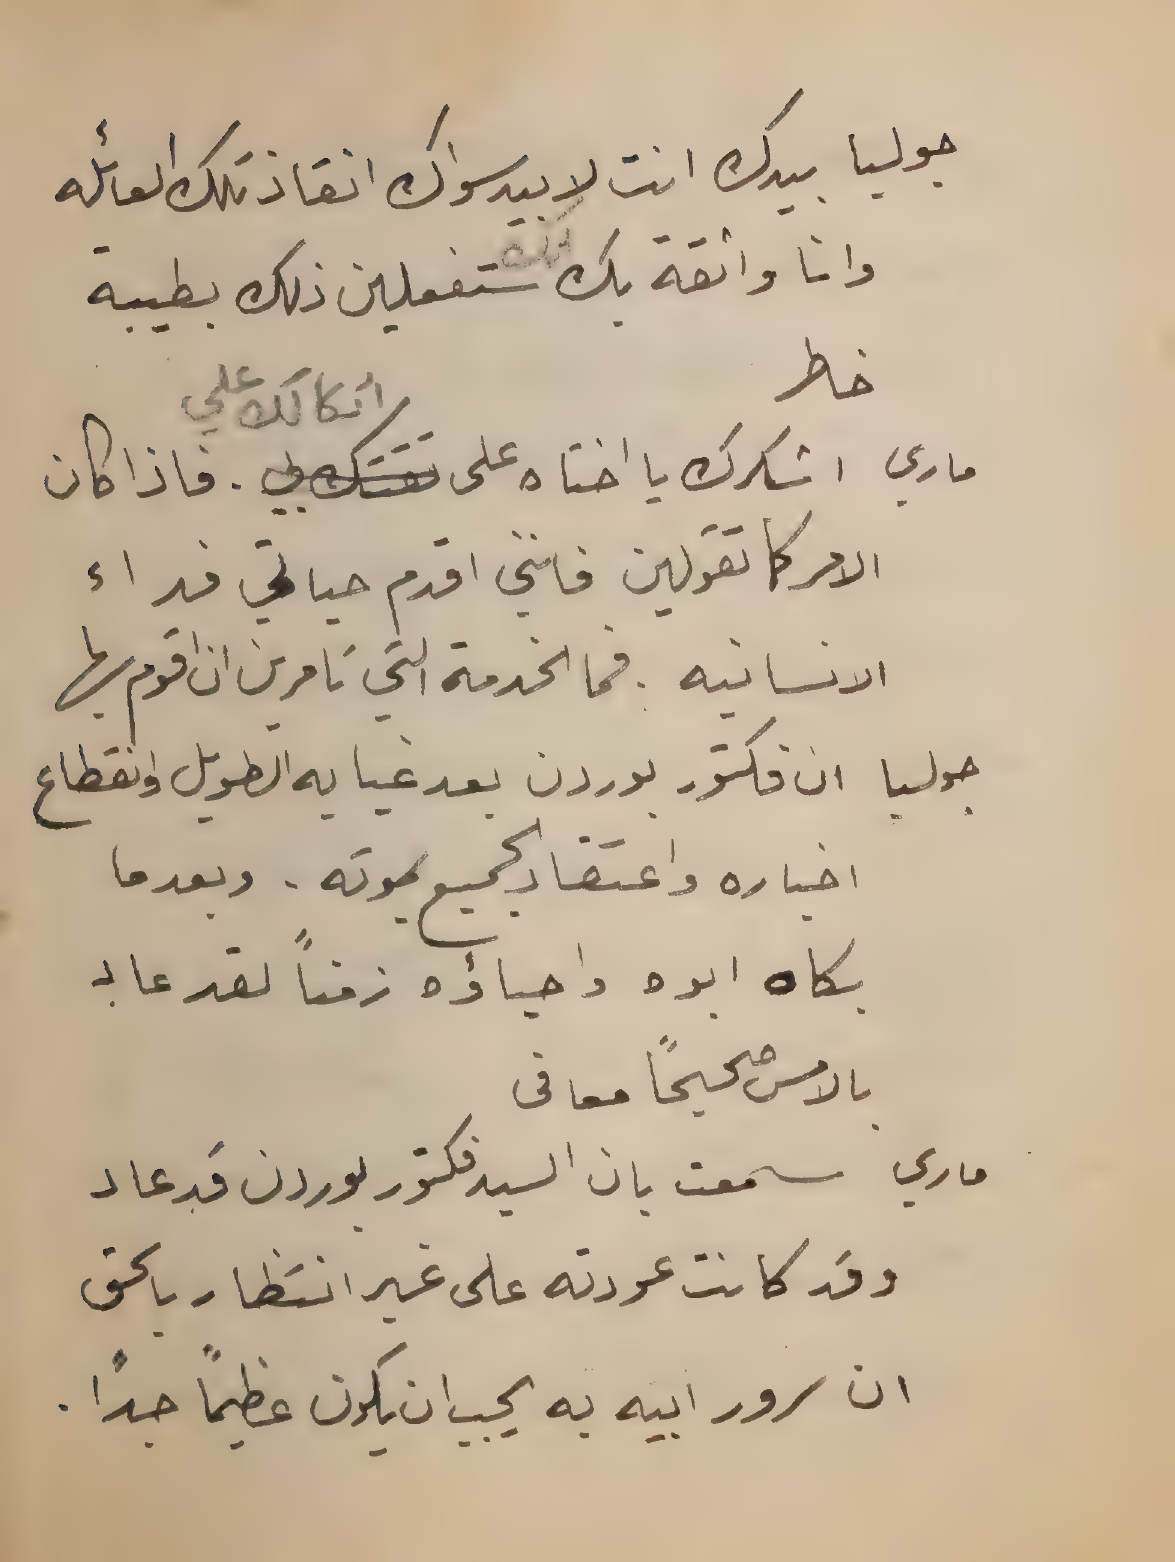 جوليا بيدك انت لا بيد سواك انقاذ تلك العائله
انك
وانا واثقة بك ستفعلين ذلك بطيبة
خاطر
اتكالك علي
ماري اشكرك يا اختاه على ثقتك بي . فاذا كان
الامر كما تقولين فانني اقدم حياتي فداء
الانسانيه . فما الخدمة التي تامرين ان اقوم بها
جوليا ان فكتور بوردن بعد غيابه الطويل وانقطاع
اخباره واعتقاد الجميع بموته . وبعدما
بكاه ابوه واحباؤه زمناً لقد عاد
بالامس صحيحاً معافى
ماري سمعت بان السيد فكتور بوردن قد عاد
وقد كانت عودته على غير انتظار بالحق
ان سرور ابيه به يجب ان يكون عظيماً جداً .